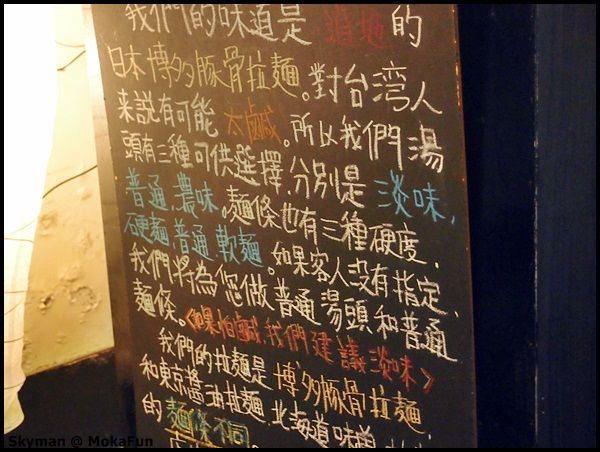 我們的味道是道地的
日本博多豚骨拉麵。對台湾人
来説有可能太鹹。所以我們湯
頭有三種可供選擇,分別是淡味,
普通,濃味。麵條也有三種硬度,
硬麵,普通,軟麵。如果客人沒有指定,
我們將為您做普通湯頭和普通
麵條。<如果怕鹹,我們建議淡味>
我們的拉麵是博多豚骨拉麵,
和東京醬油拉麵,北海道味噌
的麵條不同
Skyman @ MokaFun